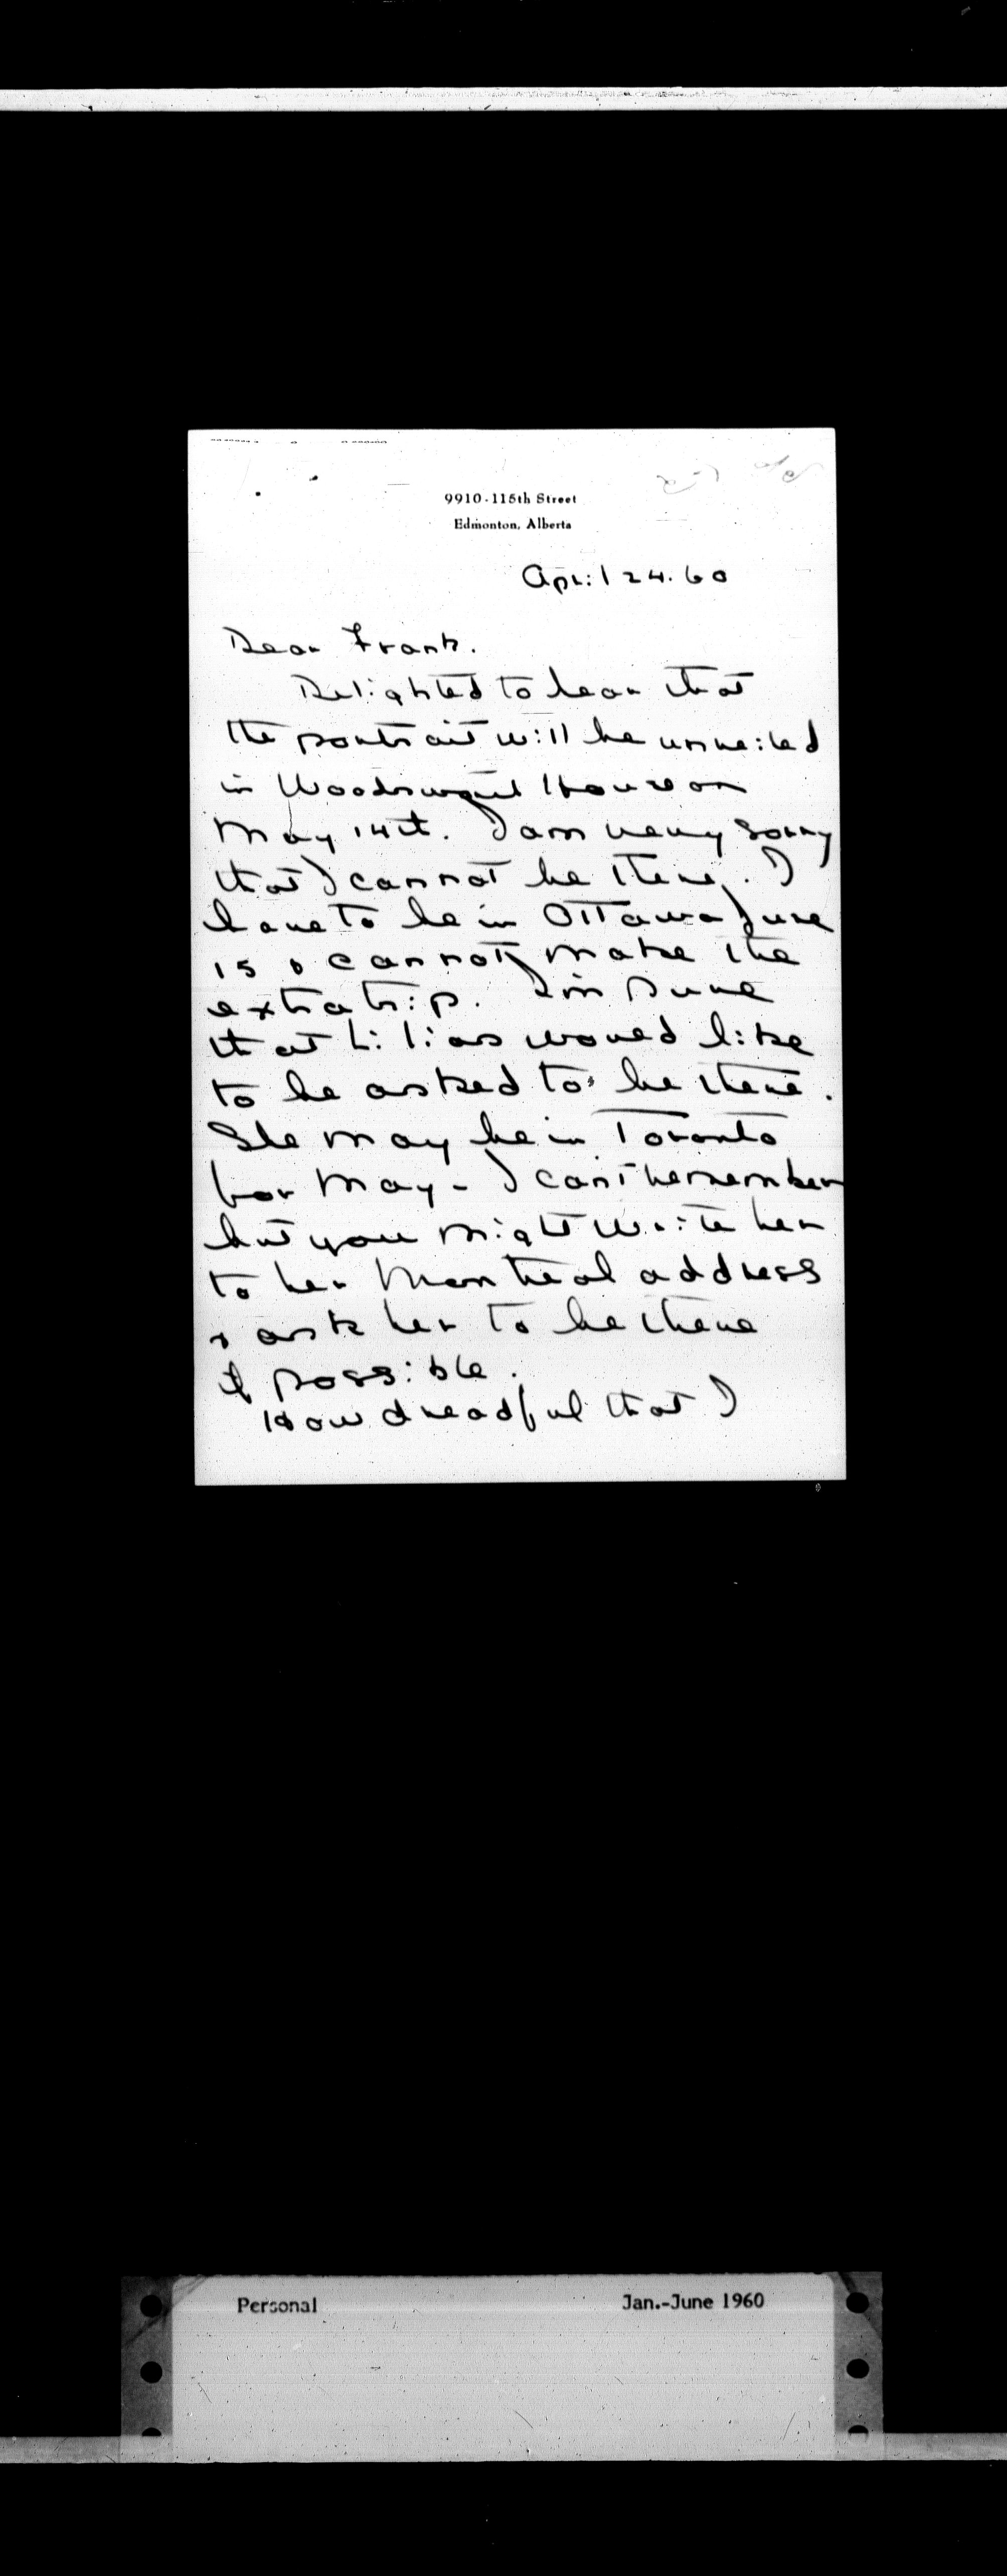 9910-115th Street
Edmonton, Alberta
April 24. 60
Dear Frank.
Delighted to hear that
the portrait will be unveiled
in Woodsworth House on
May 14th. I am very sorry
that I cannot be there. I
have to be in Ottawa June
15 & cannot make the
extra trip. I'm sure
that Lilias would like
to be asked to be there.
She may be in Toronto
for May - I can't remember
but you might write her
to her Montreal address
& ask her to be there
if possible.
How dreadful that I
Personal
Jan.-June 1960